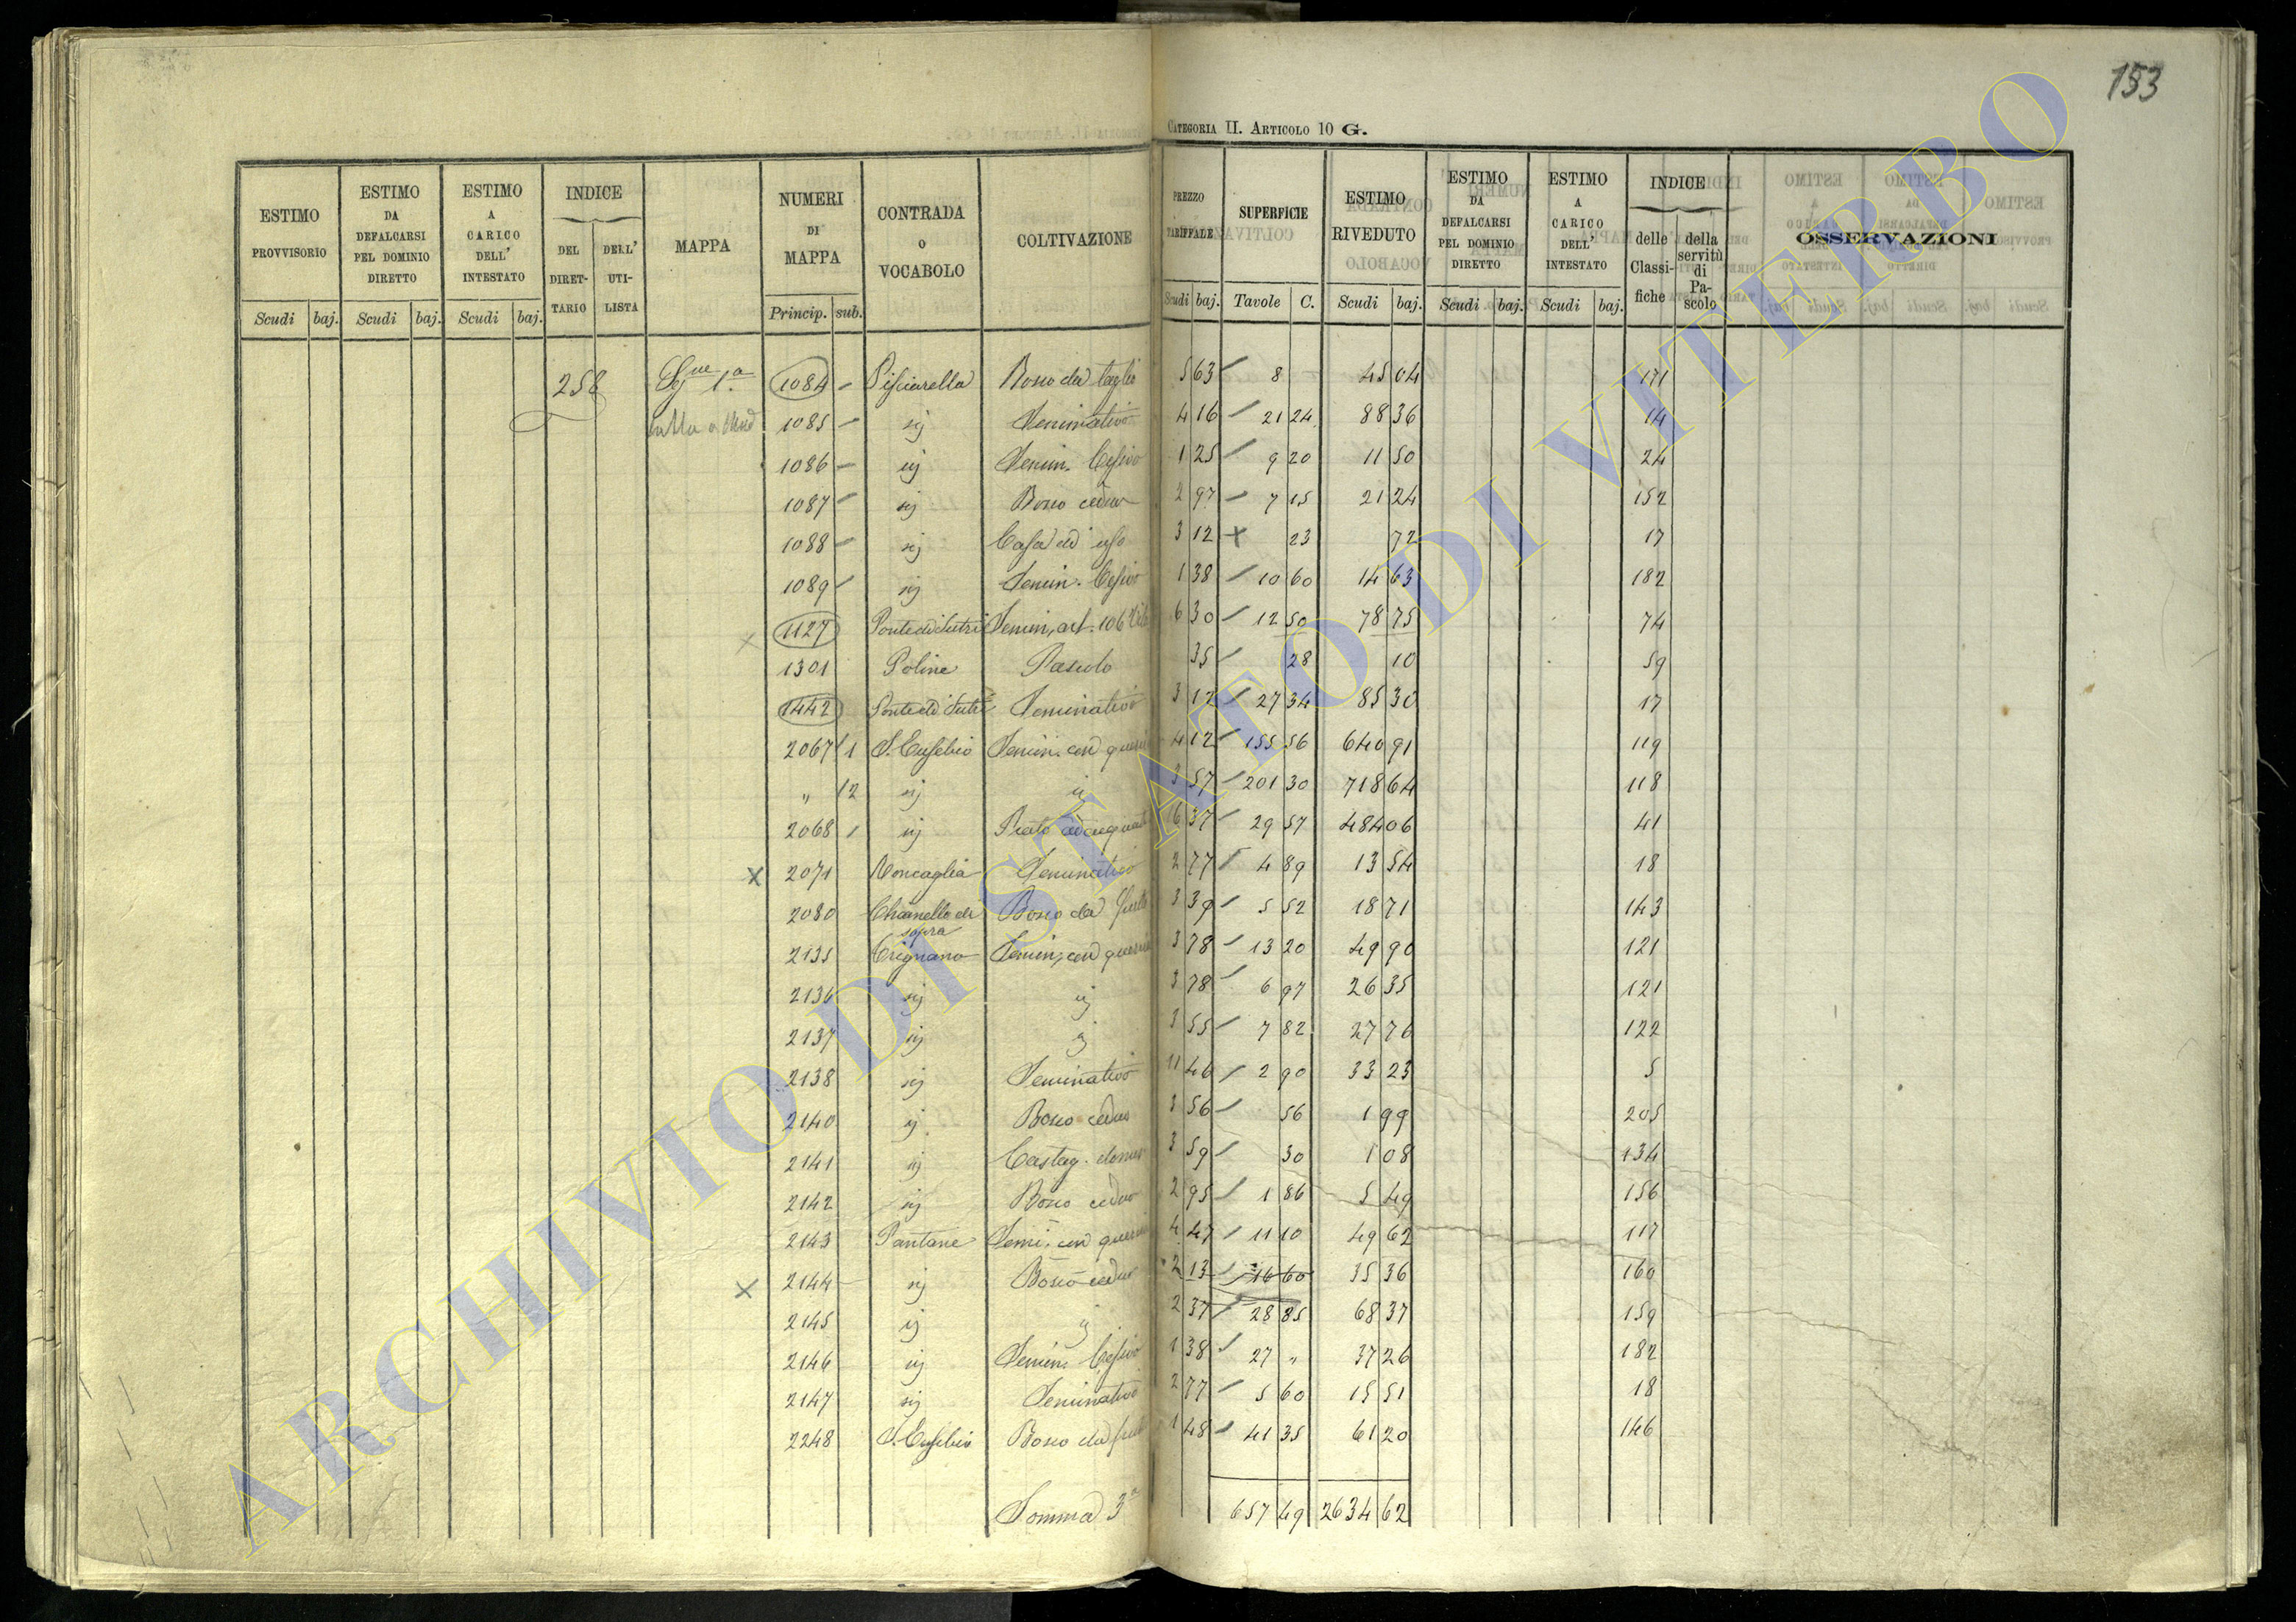 153
CATEGORIA II. ARTICOLO 10 G.
ESTIMO PROVVISORIO Scudi baj.
ESTIMO DA DEFALCARSI PEL DOMINIO DIRETTO Scudi baj.
ESTIMO A CARICO DELL' INTESTATO Scudi baj.
INDICE DEL DIRET-TARIO DELL' UTI-LISTA
MAPPA
NUMERI DI MAPPA Princip. sub.
CONTRADA O VOCABOLO
COLTIVAZIONE
PREZZO TARIFFALE Scudi baj.
SUPERFICIE Tavole C.
ESTIMO RIVEDUTO Scudi baj.
ESTIMO DA DEFALCARSI PEL DOMINIO DIRETTO Scudi baj.
ESTIMO A CARICO DELL' INTESTATO Scudi baj.
INDICE delle Classi-fiche della servitù di Pa-scolo
OSSERVAZIONI
258 1a 1084 Pisciarella Bosco da taglio 5 63 8 45 04 171
1085 sij Seminativo 4 16 21 24 88 36 14
1086 sij Semin. Cesivo 1 25 9 20 11 50 24
1087 sij Bosco ceduo 2 97 7 15 21 24 152
1088 sij Casa ad uso 3 12 23 72 17
1089 sij Semin. Cesivo 1 38 10 60 14 63 182
1127 Ponte di Sutri Semin. art. 106 6 30 12 50 78 75 74
1301 Poline Pascolo 35 28 10 59
1442 Ponte di Sutri Seminativo 3 12 27 34 85 30 17
2067 1 S. Eusebio Semin. con querci 4 12 155 56 640 91 119
" 2 sij ij 3 57 201 30 718 64 118
2068 sij Prato 6 37 29 57 484 06 41
2071 Roncaglia Seminativo 2 77 4 89 13 54 18
2080 Chianello di sopra Bosco da frutto 3 39 5 52 18 71 143
2135 Crignano Semin. con querci 3 78 13 20 49 90 121
2136 sij ij 3 78 6 97 26 35 121
2137 sij ij 3 55 7 82 27 76 122
2138 sij Seminativo 11 46 2 90 33 23 5
2140 sij Bosco ceduo 3 56 56 1 99 205
2141 sij Castag. 3 59 30 1 08 134
2142 sij Bosco ceduo 2 95 1 86 5 49 156
2143 Pantane Semi. con querci 4 47 11 10 49 62 117
2144 sij Bosco ceduo 2 13 16 60 35 36 160
2145 ij ij 2 37 28 85 68 37 159
2146 sij Semin. Cesivo 1 38 27 " 37 26 182
2147 sij Seminativo 2 77 5 60 15 51 18
2248 S. Eusebio Bosco da frutto 1 48 41 35 61 20 146
Somma 3a 657 49 2634 62
ARCHIVIO DI STATO DI VITERBO